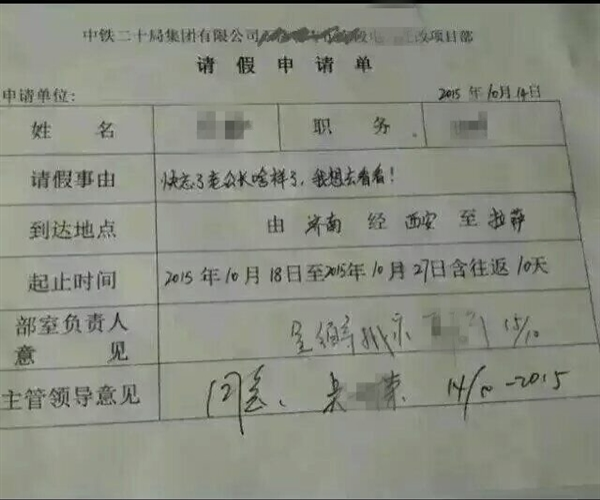 中铁二十局集团有限公司 改项目部
请假申请单
申请单位: 2015年10月14日
姓名 职务
请假事由 快忘了老公长啥样了,我想去看看!
到达地点 由 济南 经 西安 至 拉萨
起止时间 2015年10月18日至2015年10月27日含往返10天
部室负责人 呈领导批示 15/10
意见
主管领导意见 同意、 14/10-2015